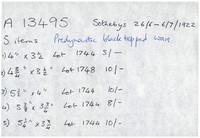 A 13495 Sothebys 26/6 - 6/7/1922
5 items Predynastic black topped ware
1) 4" x 3½" Lot 1744 5/-
2) 4¾" x 3½" Lot 1748 10/-
3) 5½" x 4" Lot 1744 10/-
4) 5" x 3¾" Lot 1744 8/-
5) 5¼" x 3¾" Lot 1744 10/-